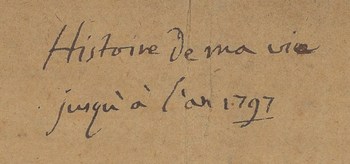 Histoire de ma vie
jusqu'à à l'an 1797